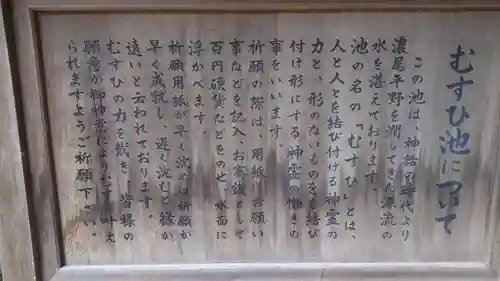 むすひ池について
この池は、神話の時代より
濃尾平野を潤してきた源流の
水を湛えております。
池の名の「むすひ」とは、
人と人とを結び付ける神霊の
力と、形のないものをも結び
付け形にする神霊の働きの
事をいいます。
祈願の際は、用紙にお願い
事などを記入、お賽銭として
百円硬貨などをのせ、水面に
浮かべます。
祈願用紙が早く沈めば祈願が
早く成就し、遅く沈むと縁が
遠いと云われております。
むすひの力を戴き、皆様の
願意が御神意によって叶え
られますようご祈願下さい。